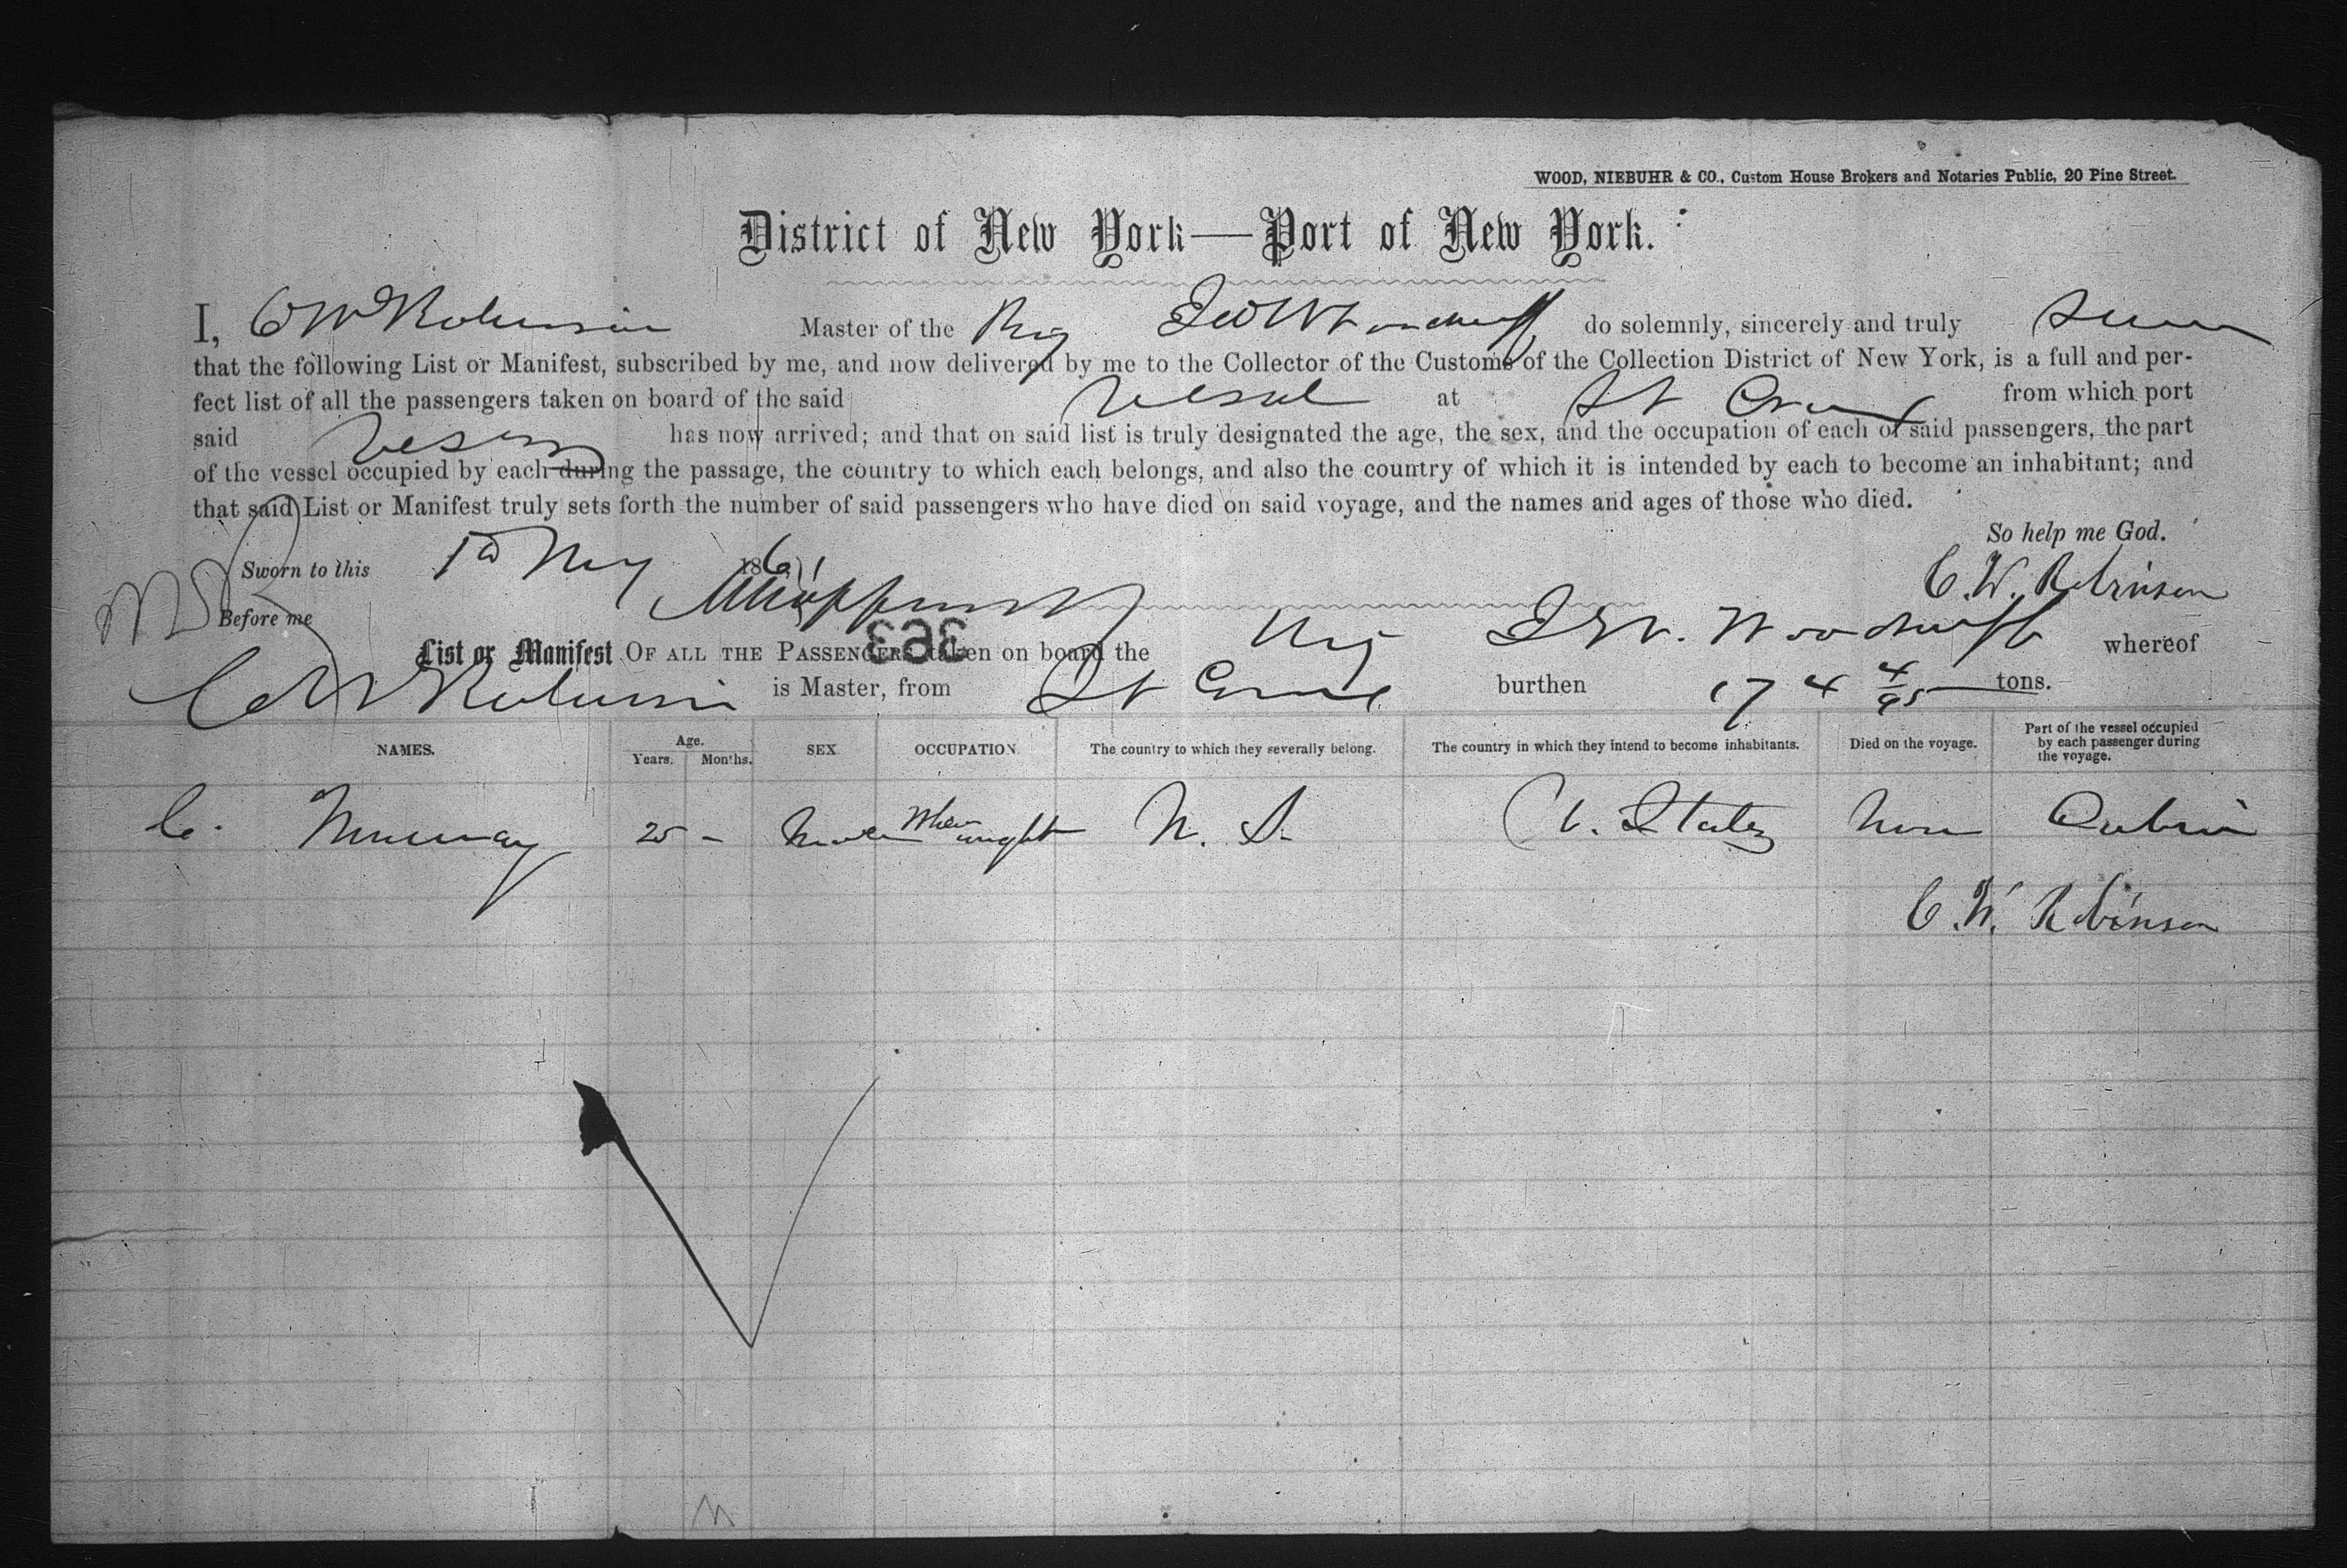 WOOD, NIEBUHR & CO., Custom House Brokers and Notaries Public, 20 Pine Street.
District of New York—Port of New York.
I, C W Robinson Master of the Brig J W Woodruff do solemnly, sincerely and truly swear
that the following List or Manifest, subscribed by me, and now delivered by me to the Collector of the Customs of the Collection District of New York, is a full and per-
fect list of all the passengers taken on board of the said Vessel at St Croix from which port
said Vessel has now arrived; and that on said list is truly designated the age, the sex, and the occupation of each of said passengers, the part
of the vessel occupied by each during the passage, the country to which each belongs, and also the country of which it is intended by each to become an inhabitant; and
that said List or Manifest truly sets forth the number of said passengers who have died on said voyage, and the names and ages of those who died.
So help me God.
Sworn to this 1st May 1861 C. W. Robinson
Before me
363
List or Manifest OF ALL THE PASSENGERS taken on board the Brig J W. Woodruff whereof
C W Robinson is Master, from St Croix burthen 174 4/95 tons.
NAMES. Age. Years. Months. SEX. OCCUPATION. The country to which they severally belong. The country in which they intend to become inhabitants. Died on the voyage. Part of the vessel occupied by each passenger during the voyage.
C. Murray 25 - Male Wheelwright N. S. U. States None Cabin
C. W. Robinson